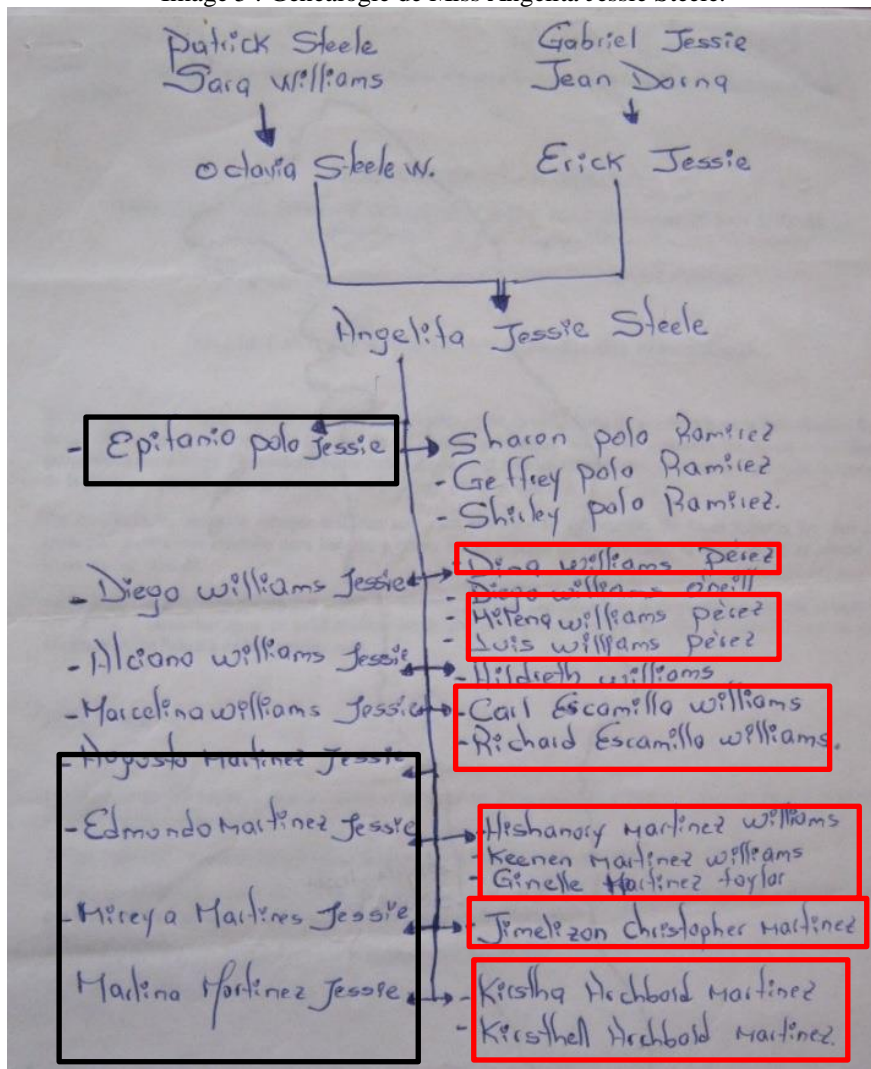 Image 54 Généalogie de Miss Angelita Jessie Steele.
Patrick Steele
Sara Williams
Gabriel Jessie
Jean Dorna
Octavia Steele W.
Erick Jessie
Angelita Jessie Steele
- Epifanio polo Jessie
Sharon polo Ramirez
- Geffrey polo Ramirez
- Shirley polo Ramirez.
- Diego williams Jessie
- Dina williams Pérez
- Diego williams o'neill
- Milena williams pérez
- Luis williams pérez
- Alciano williams Jessie
- Hildreth williams
- Marcelina williams Jessie
- Carl Escamilla williams
- Richard Escamilla williams.
- Augusto Martinez Jessie
- Edmundo Martinez Jessie
- Hishanory Martinez Williams
- Keenen Martinez williams
- Ginelle Martinez taylor
- Mireya Martines Jessie
- Jimelizon Christopher Martinez
Martina Martinez Jessie
- Kirstha Archbold Martinez
- Kirsthell Archbold Martinez.